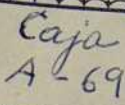 Caja
A-69